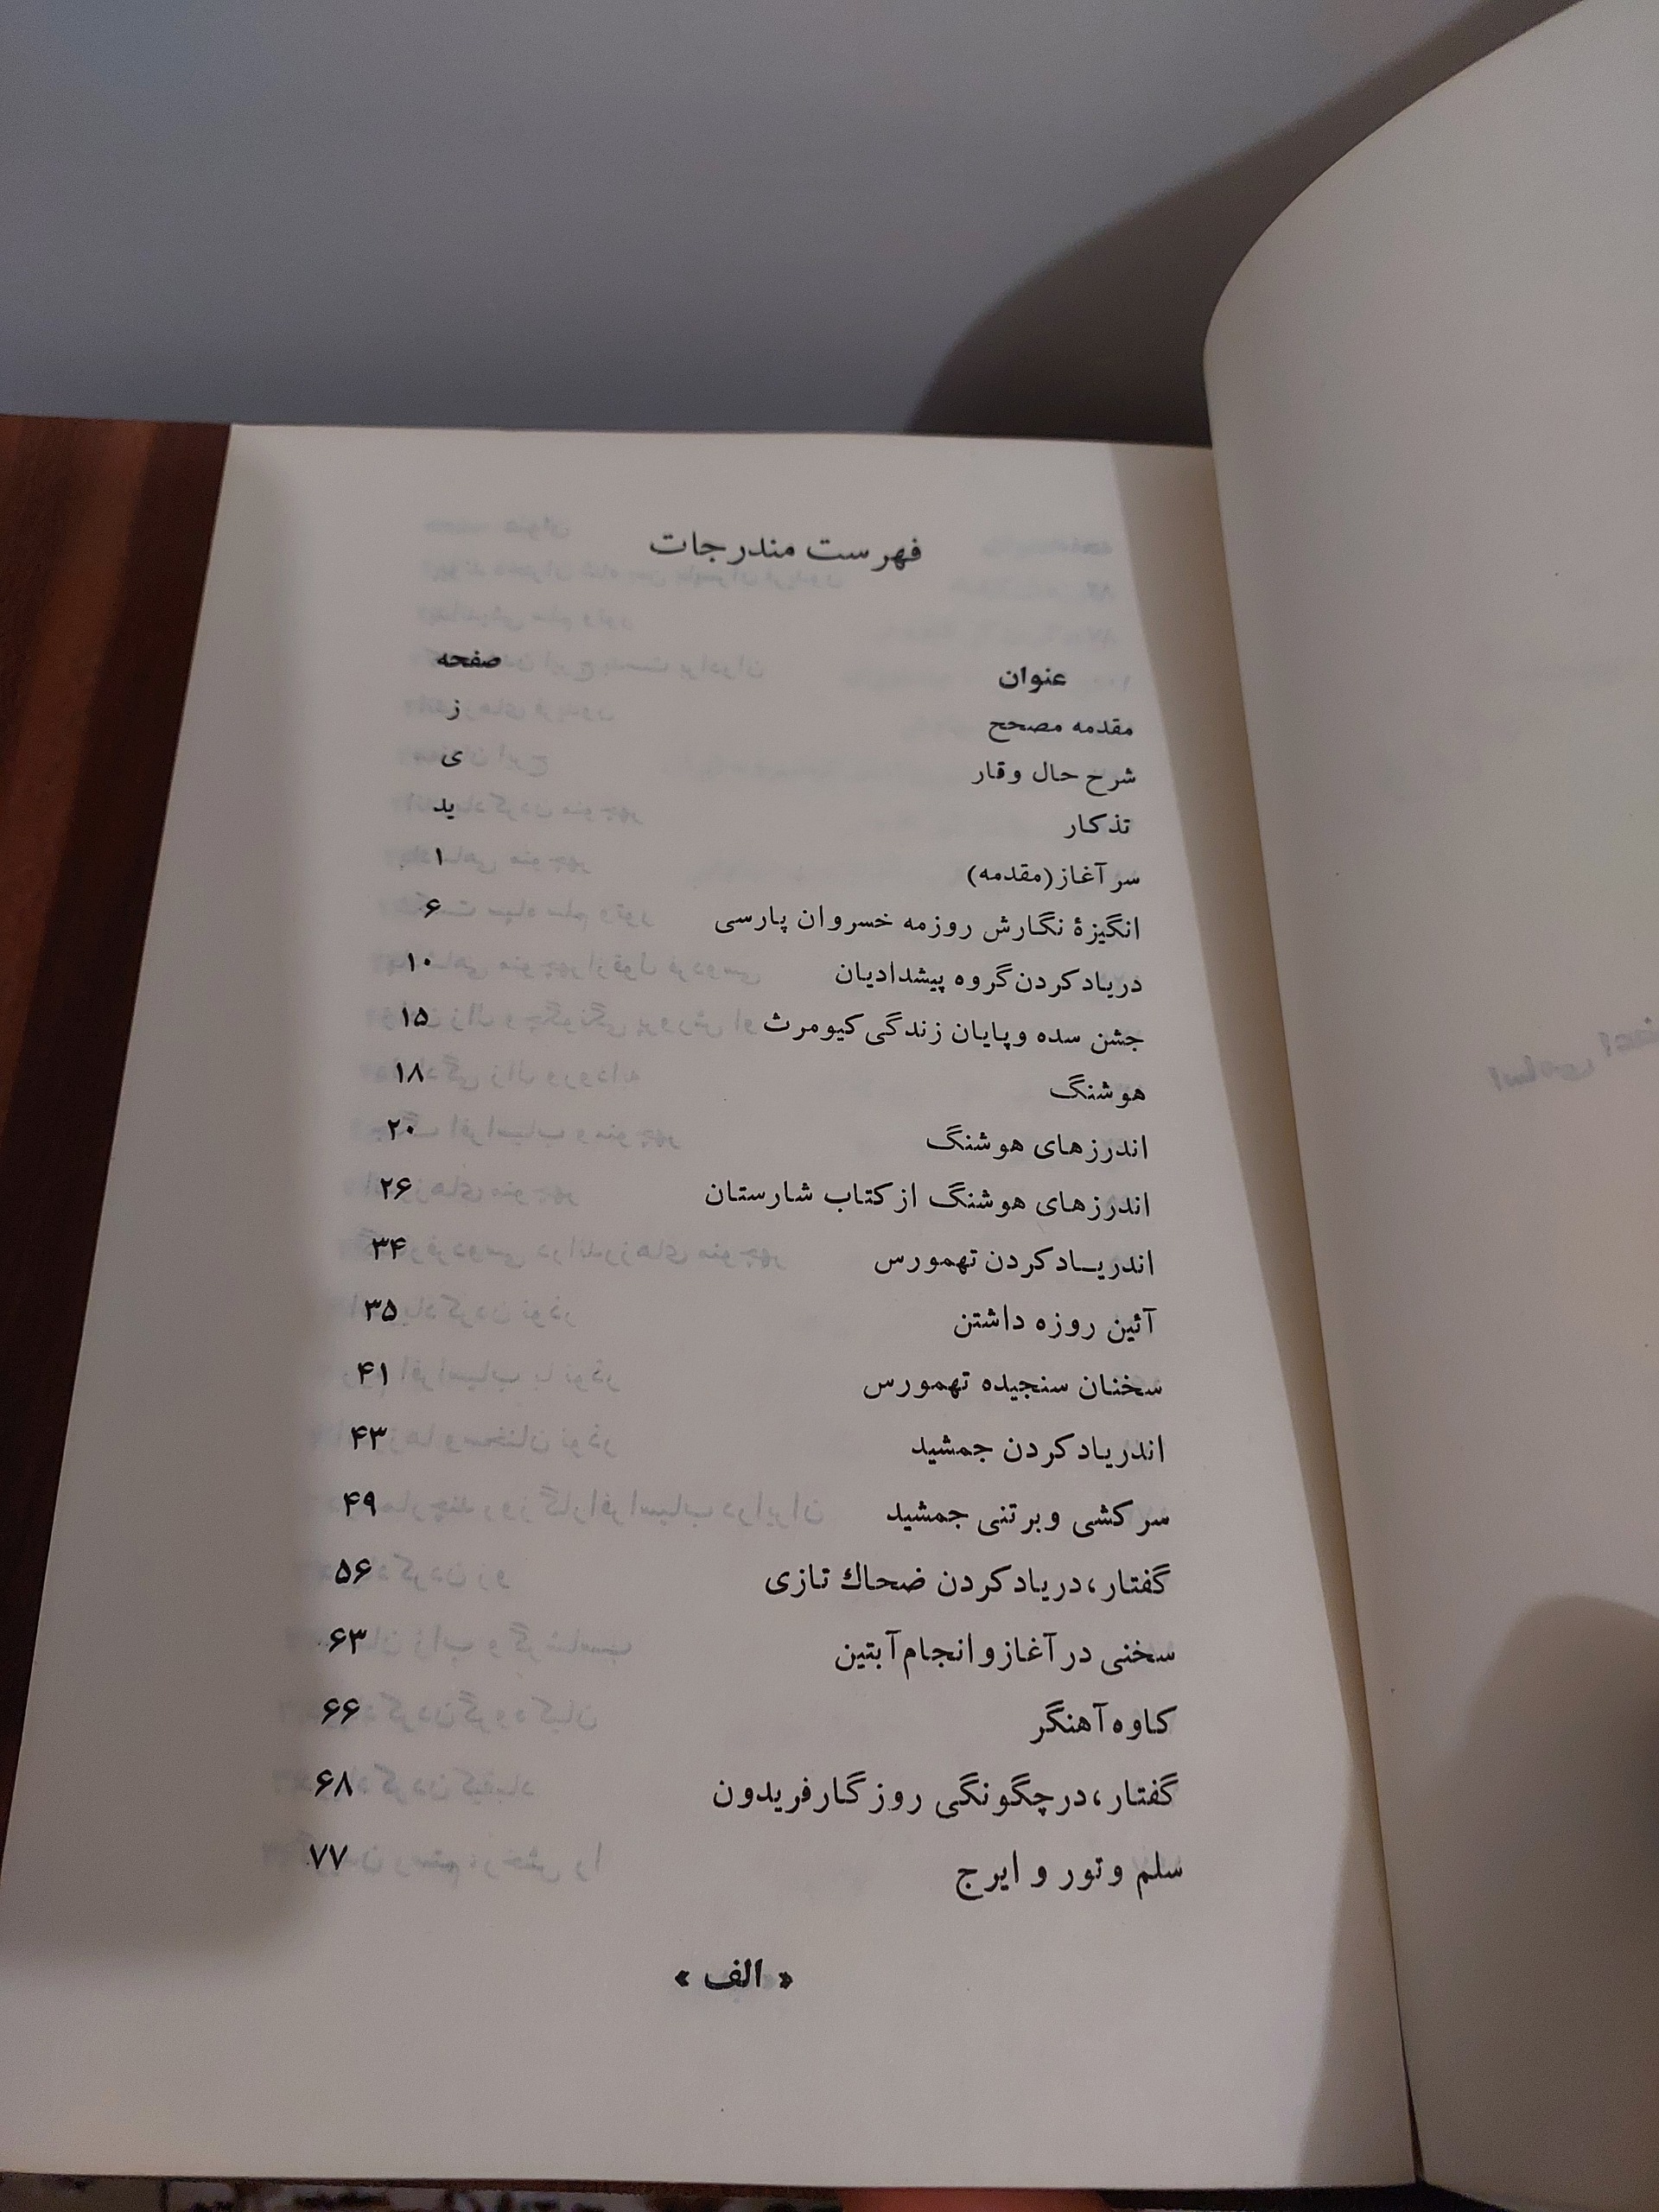 فهرست مندرجات
عنوان صفحه
مقدمه مصحح ز
شرح حال وقار ی
تذکار ید
سرآغاز(مقدمه) ۱
انگیزهٔ نگارش روزمه خسروان پارسی ۶
دریادکردن گروه پیشدادیان ۱۰
جشن سده وپایان زندگی کیومرث ۱۵
هوشنگ ۱۸
اندرزهای هوشنگ ۲۰
اندرزهای هوشنگ از کتاب شارستان ۲۶
اندریـادکردن تهمورس ۳۴
آئین روزه داشتن ۳۵
سخنان سنجیده تهمورس ۴۱
اندریادکردن جمشید ۴۳
سرکشی وبرتنی جمشید ۴۹
گفتار،دریادکردن ضحاك تازی ۵۶
سخنی درآغاز وانجام آبتین ۶۳
کاوه آهنگر ۶۶
گفتار،درچگونگی روزگارفریدون ۶۸
سلم وتور و ایرج ۷۷
« الف »